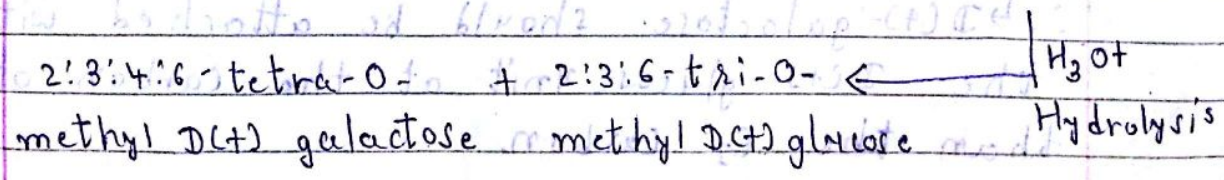 2:3:4:6-tetra-O- + 2:3:6-tri-O- ← H3O+
methyl D(+) galactose methyl D(+) glucose Hydrolysis